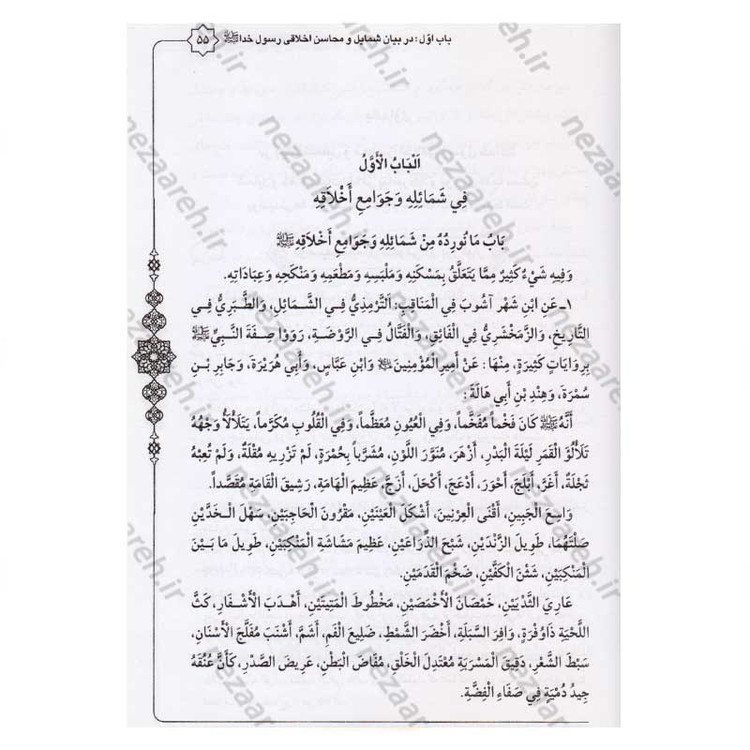 باب اوّل: در بیان شمایل و محاسن اخلاقی رسول خدا ﷺ ۵۵
اَلْبَابُ الْأَوَّلُ
فِي شَمَائِلِهِ وَجَوَامِعِ أَخْلَاقِهِ
بَابُ مَا نُورِدُهُ مِنْ شَمَائِلِهِ وَجَوَامِعِ أَخْلَاقِهِ ﷺ
وَفِيهِ شَيْءٌ كَثِيرٌ مِمَّا يَتَعَلَّقُ بِمَسْكَنِهِ وَمَلْبَسِهِ وَمَطْعَمِهِ وَمَنْكَحِهِ وَعِبَادَاتِهِ.
۱ـ عَنِ ابْنِ شَهْر آشُوبَ فِي الْمَنَاقِبِ: اَلتِّرْمِذِيُّ فِي الشَّمَائِلِ، وَالطَّبَرِيُّ فِي
التَّارِيخِ، وَالزَّمَخْشَرِيُّ فِي الْفَائِقِ، وَالْفَتَّالُ فِي الرَّوْضَةِ، رَوَوْا صِفَةَ النَّبِيِّ ﷺ
بِرِوَايَاتٍ كَثِيرَةٍ، مِنْهَا: عَنْ أَمِيرِ الْمُؤْمِنِينَ ﷺ وَابْنِ عَبَّاسٍ، وَأَبِي هُرَيْرَةَ، وَجَابِرِ بْنِ
سَمُرَةَ، وَهِنْدِ بْنِ أَبِي هَالَةَ:
أَنَّهُ ﷺ كَانَ فَخْماً مُفَخَّماً، وَفِي الْعُيُونِ مُعَظَّماً، وَفِي الْقُلُوبِ مُكَرَّماً، يَتَلَأْلَأُ وَجْهُهُ
تَلَأْلُؤَ الْقَمَرِ لَيْلَةَ الْبَدْرِ، أَزْهَرَ، مُنَوَّرَ اللَّوْنِ، مُشْرَباً بِحُمْرَةٍ، لَمْ تَزْرِ بِهِ مُقْلَةٌ، وَلَمْ تُعِبْهُ
ثَجْلَةٌ، أَغَرَّ، أَبْلَجَ، أَحْوَرَ، أَدْعَجَ، أَكْحَلَ، أَزَجَّ، عَظِيمَ الْهَامَةِ، رَشِيقَ الْقَامَةِ مُقَصَّداً.
وَاسِعَ الْجَبِينِ، أَقْنَى الْعِرْنِينِ، أَشْكَلَ الْعَيْنَيْنِ، مَقْرُونَ الْحَاجِبَيْنِ، سَهْلَ الْخَدَّيْنِ
صَلْتَهُمَا، طَوِيلَ الزَّنْدَيْنِ، شَبْحَ الذِّرَاعَيْنِ، عَظِيمَ مَشَاشَةِ الْمَنْكِبَيْنِ، طَوِيلَ مَا بَيْنَ
الْمَنْكِبَيْنِ، شَثْنَ الْكَفَّيْنِ، ضَخْمَ الْقَدَمَيْنِ.
عَارِيَ الثَّدْيَيْنِ، خَمْصَانَ الْأَخْمَصَيْنِ، مَخْطُوطَ الْمَتِيتَيْنِ، أَهْدَبَ الْأَشْفَارِ، كَثَّ
اللِّحْيَةِ ذَا وَفْرَةٍ، وَافِرَ السَّبَلَةِ، أَخْضَرَ الشَّمْطِ، ضَلِيعَ الْفَمِ، أَشَمَّ، أَشْنَبَ مُفَلَّجَ الْأَسْنَانِ،
سَبْطَ الشَّعْرِ، دَقِيقَ الْمَسْرُبَةِ مُعْتَدِلَ الْخَلْقِ، مُفَاضَ الْبَطْنِ، عَرِيضَ الصَّدْرِ، كَأَنَّ عُنُقَهُ
جِيدُ دُمْيَةٍ فِي صَفَاءِ الْفِضَّةِ.
nezaareh.ir